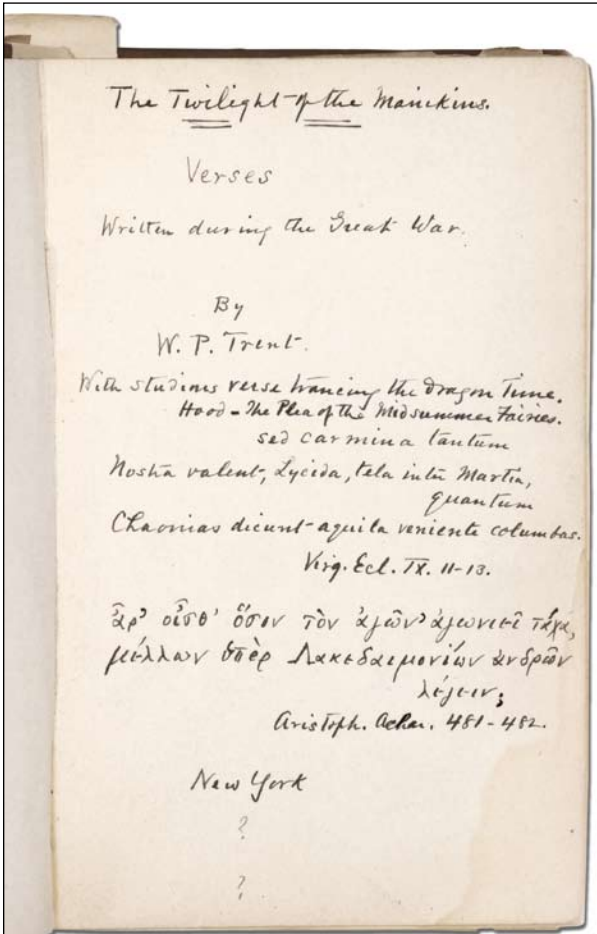 The Twilight of the Manikins.
Verses
Written during the Great War.
By
W. P. Trent.
With studious verse trancing the dragon Time.
Hood - The Plea of the Midsummer Fairies.
sed carmina tantum
Nostra valent, Lycida, tela inter Martia,
quantum
Chaonias dicunt aquila veniente columbas.
Virg. Ecl. IX. 11-13.
ἆρ' οἶσθ' ὅσον τὸν ἀγῶν' ἀγωνιεῖ τάχα,
μέλλων ὑπὲρ Λακεδαιμονίων ἀνδρῶν
λέγειν;
Aristoph. Achar. 481-482.
New York
?
?